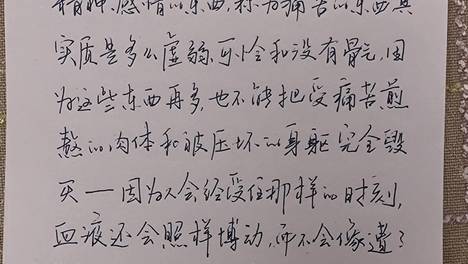 精神、感情的东西,称为痛苦的东西其
实质是多么虚弱、可怜和没有骨气,因
为这些东西再多,也不能把受痛苦煎
熬的肉体和被压坏的身躯完全毁
灭——因为人会经受住那样的时刻,
血液还会照样搏动,而不会像遭了